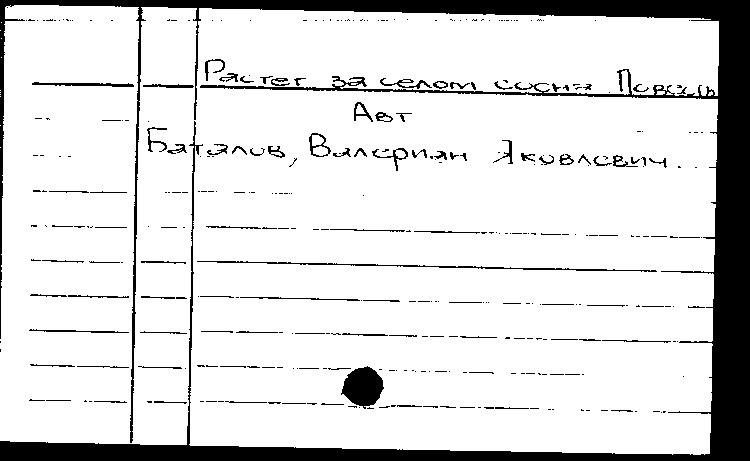 Растет за селом сосна Повесть
Авт
Баталов, Валериан Яковлевич.